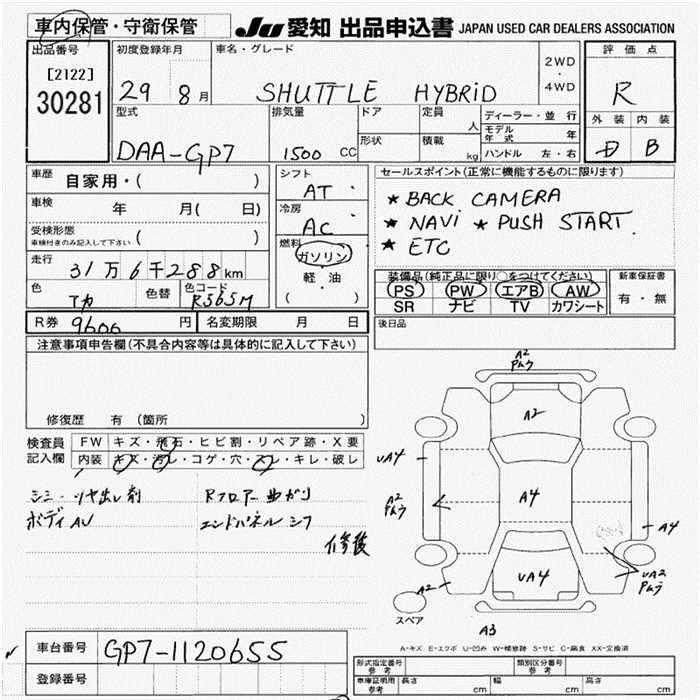 車内保管・守衛保管 JU 愛知 出品申込書 JAPAN USED CAR DEALERS ASSOCIATION
出品番号 初度登録年月 車名・グレード 2WD・4WD 評価点
[2122]
30281 29 8月 SHUTTLE HYBRiD R
型式 排気量 ドア 定員 人 ディーラー・並行 外装 内装
形状 積載 kg モデル年式 年
DAA-GP7 1500 CC ハンドル 左・右 D B
車歴 自家用・( ) シフト AT セールスポイント(正常に機能するものに限ります)
車検 年 月( 日) 冷房 AC ★ BACK CAMERA
受検形態 ( ) ★ NAVi ★ PUSH START.
車検付きのみ記入して下さい 燃料 ガソリン ★ ETC
走行 31万6千288km 軽・油 ( )
装備品(純正品に限り○をつけてください) 新車保証書
色 色替 色コード R565M PS PW エアB AW 有・無
SR ナビ TV カワシート
R券 9600 円 名変期限 月 日 後日品
注意事項申告欄(不具合内容等は具体的に記入して下さい)
修復歴 有 (箇所 )
検査員 FW キズ・飛石・ヒビ割・リペア跡・X要
記入欄 内装 キズ・汚レ・コゲ・穴・スレ・キレ・破レ
シミ・ツヤ出し剤 Rフロアー曲がり
ボディAU エンドパネルシワ
修後
A2
A2
UA4
A2
A4
A4
UA2
UA4
A2
A3
スペア
A-キズ E-エクボ U-凹み W-補修跡 S-サビ C-腐食 XX-交換済
車台番号 GP7-1120655
登録番号
形式指定番号 参考 類別区分番号 参考
車庫証明用 参考 長さ cm 幅 cm 高さ cm